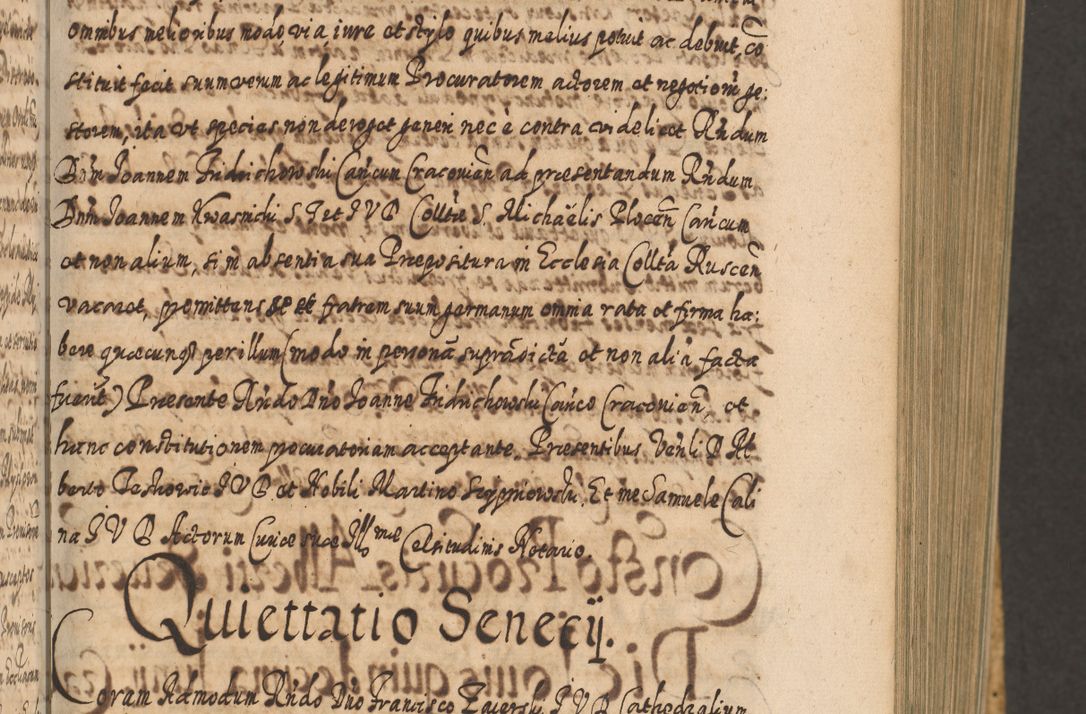 omnibus melioribus modo, via, iure et stylo quibus melius potuit ac debuit, cō
stituit fecit suum verum ac legitimum Procuratorem actorem et negotiom̄ ge:
storem, ita ut species non deroget generi nec è contra videlicet Rn̄dum
Dn̄m Joannem Fridrichowski Can̄cum Cracovien̄ ad præsentandum Rn̄dum
Dn̄m Joannem Kwasnicki S. T. et J V D Colltæ S. Michaëlis Plocen̄ Can̄cum
et non alium, si in absentia sua Præpositura in Ecclesia Collta Ruscen̄
vacaret, promittens se et fratrem suum germanum omnia rata et firma ha:
bere quæcunq3 per illum (modo in personā suprādictā et non aliā, facta
fuerīt) Præsente Rn̄do Dn̄o Joanne Fridrichowski Can̄co Cracovien̄, et
hanc constitutionem procuratoriam acceptante. Præsentibus Ven̄li D Al
berto Teskowic J V D et Nobili Martino Scypniowski. Et me Samuele Cali
na J V D Actorum Curiæ suæ Ill̄mæ Celsitudinis Notario.
Quiettatio Senecij.
Coram Admodum Rn̄do Dn̄o Francisco Zajerski J V D Cathedralium